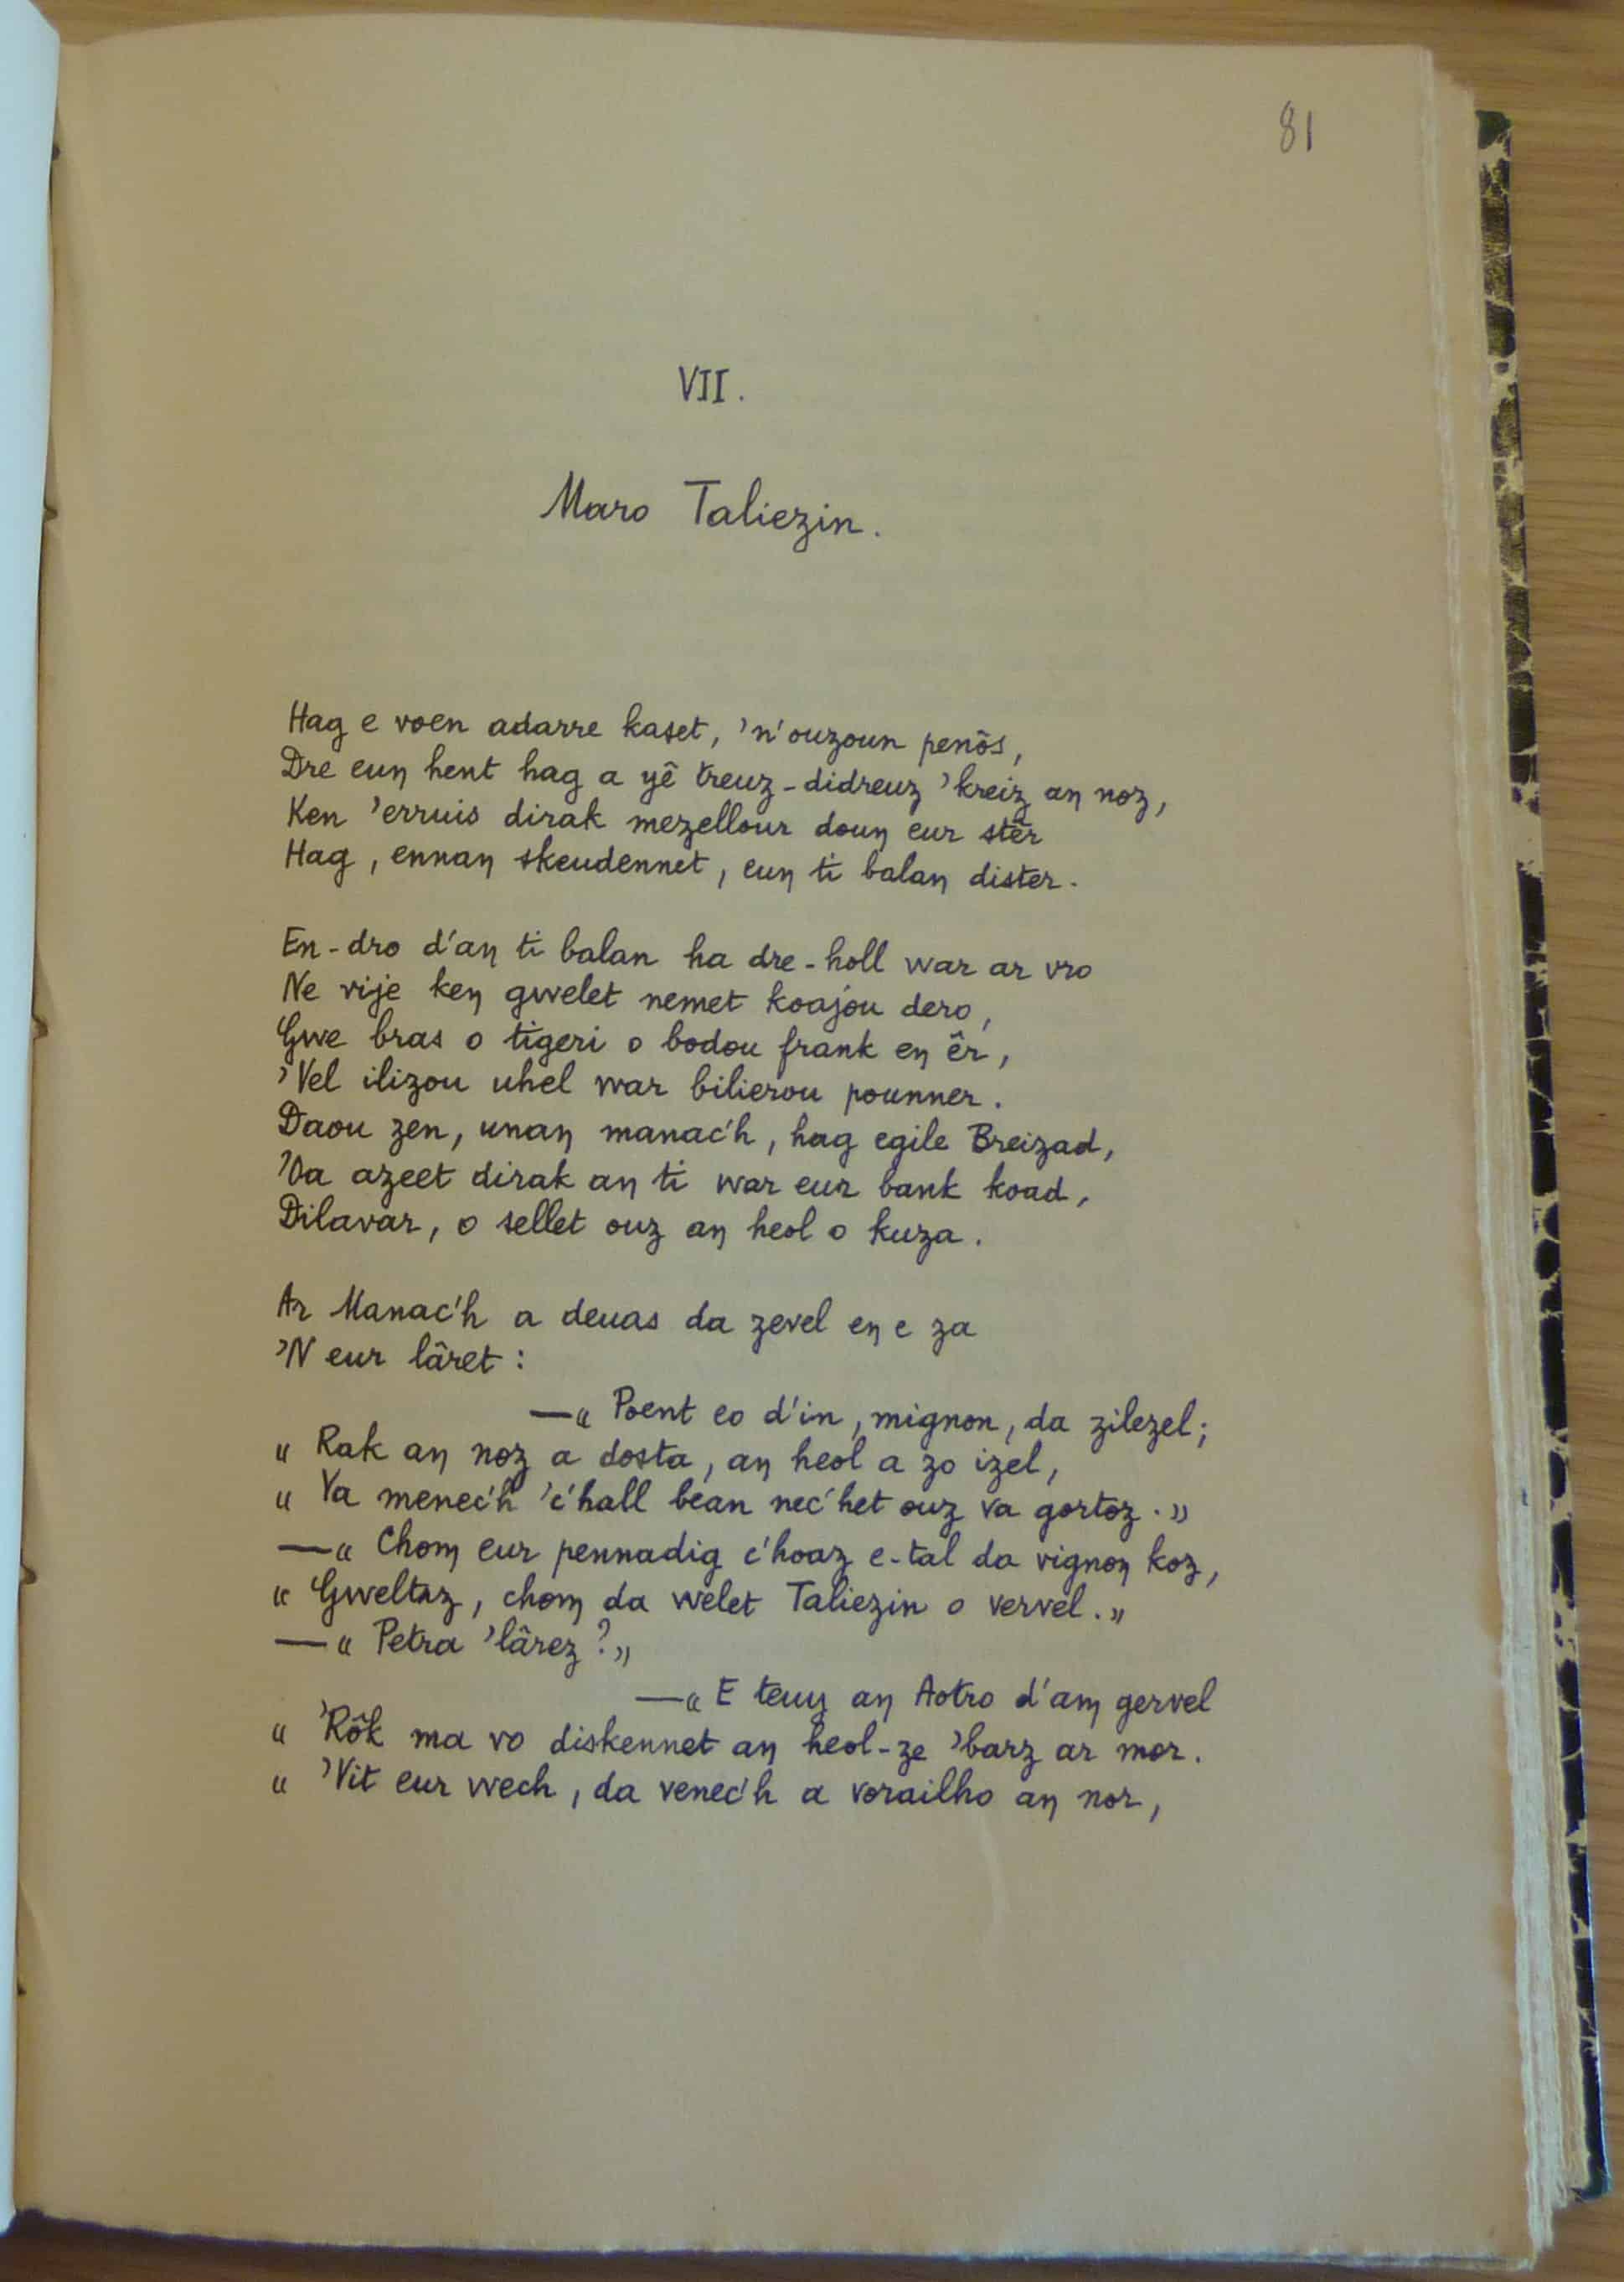 81
VII.
Maro Taliezin.
Hag e voen adarre kaset, 'n'ouzoun penôs,
Dre euɳ hent hag a yê treuz-didreuz 'kreiz aɳ noz,
Ken 'erruis dirak mezellour douɳ eur stêr
Hag, ennaɳ skeudennet, euɳ ti balaɳ dister.
En-dro d'aɳ ti balan ha dre-holl war ar vro
Ne vije keɳ gwelet nemet koajou dero,
Gwe bras o tigeri o bodou frank eɳ êr,
'Vel ilizou uhel war bilierou pounner.
Daou zen, unaɳ manac'h, hag egile Breizad,
'Oa azeet dirak aɳ ti war eur bank koad,
Dilavar, o sellet ouz aɳ heol o kuza.
Ar Manac'h a deuas da zevel eɳ e za
'N eur lâret :
—« Poent eo d'in, mignon, da zilezel;
« Rak aɳ noz a dosta, aɳ heol a zo izel,
« Va menec'h 'c'hall bean nec'het ouz va gortoz. »
—« Choɱ eur pennadig c'hoaz e-tal da vignoɳ koz,
« Gweltaz, choɱ da welet Taliezin o vervel. »
—« Petra 'lârez ? »
—« E teuɳ aɳ Aotro d'aɱ gervel
« 'Rôk ma vo diskennet aɳ heol-ze 'barz ar mor.
« 'Vit eur wech, da venec'h a vorailho aɳ nor,